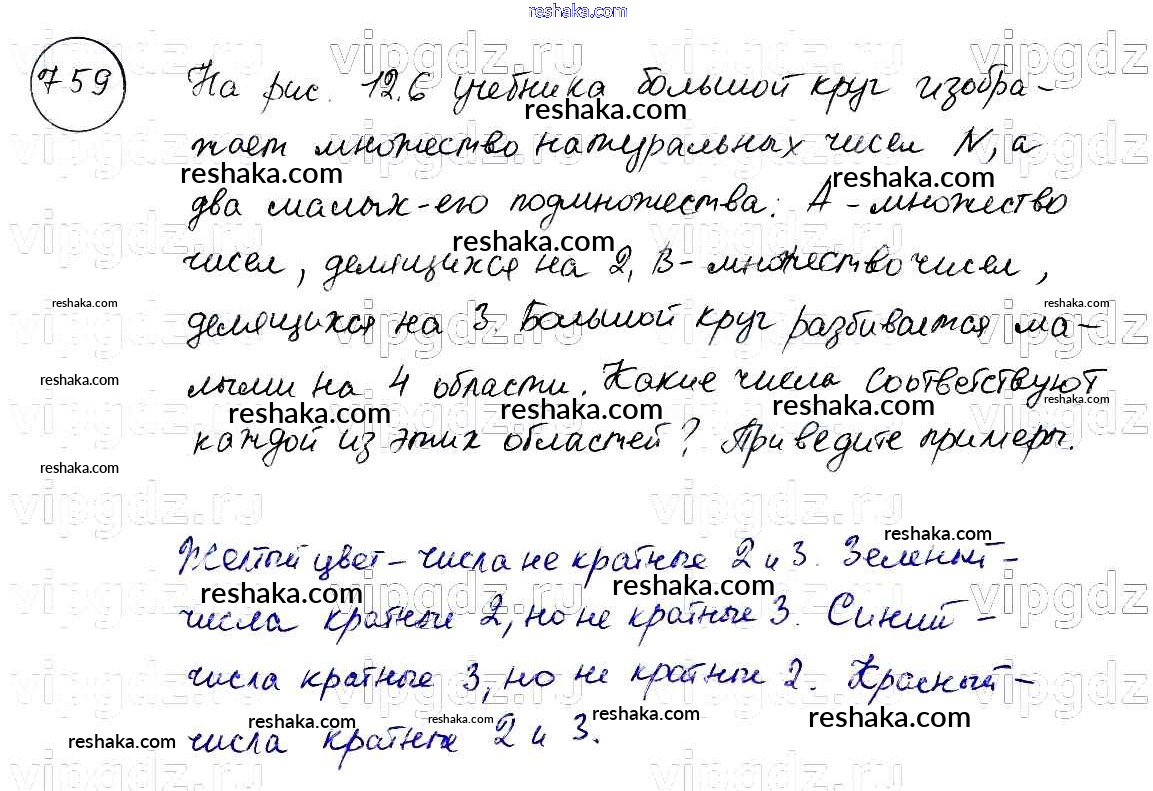 reshaka.com
759
На рис. 12.6 учебника большой круг изобра-
жает множество натуральных чисел N, а
два малых - его подмножества: А - множество
чисел, делящихся на 2, В - множество чисел,
делящихся на 3. Большой круг разбивается ма-
лыми на 4 области. Какие числа соответствуют
каждой из этих областей? Приведите примеры.
Желтый цвет - числа не кратные 2 и 3. Зеленый -
числа кратные 2, но не кратные 3. Синий -
числа кратные 3, но не кратные 2. Красный -
числа кратные 2 и 3.
vipgdz.ru
reshaka.com